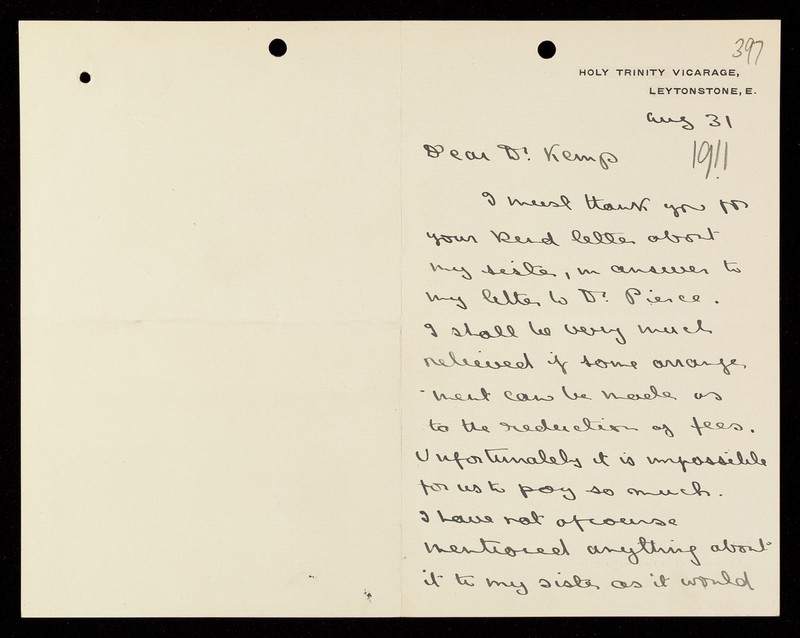 397
HOLY TRINITY VICARAGE,
LEYTONSTONE, E.
Aug 31
1911
Dear Dr. Kemp
I must thank you for
your kind letter about
my sister, in answer to
my letter to Dr. Pierce.
I shall be very much
relieved if some arrange
-ment can be made as
to the reduction of fees.
Unfortunately it is impossible
for us to pay so much.
I have not of course
mentioned anything about
it to my sister as it would